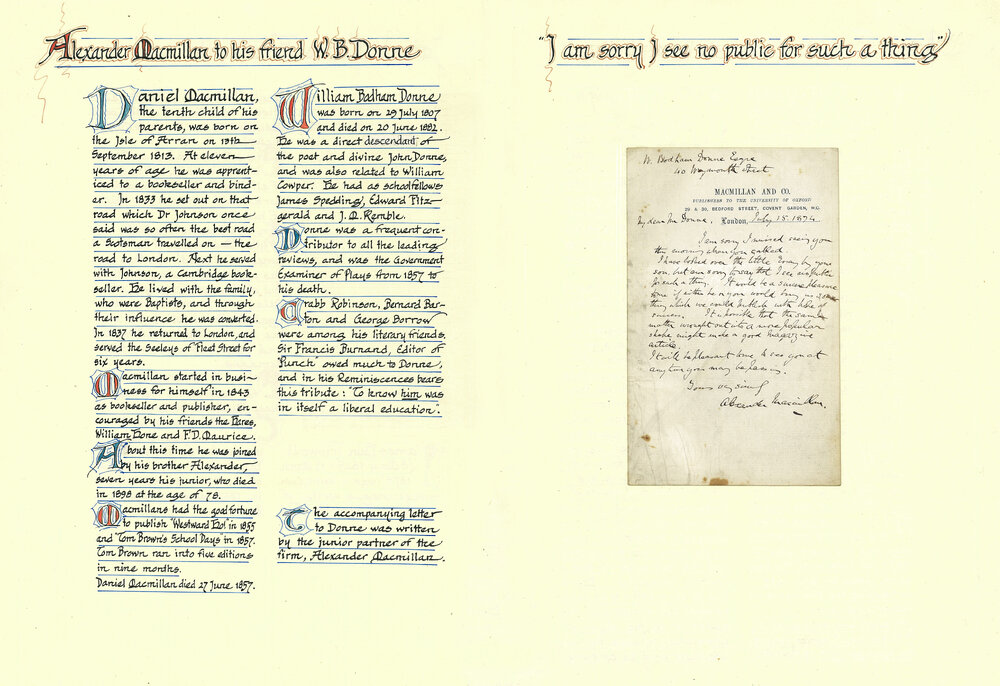 Alexander Macmillan to his friend W. B. Donne
Daniel Macmillan,
the tenth child of his
parents, was born on
the Isle of Arran on 13th
September 1813. At eleven
years of age he was apprent-
iced to a bookseller and bind-
er. In 1833 he set out on that
road which Dr Johnson once
said was so often the best road
a Scotsman travelled on — the
road to London. Next he served
with Johnson, a Cambridge book-
seller. He lived with the family,
who were Baptists, and through
their influence he was converted.
In 1837 he returned to London, and
served the Seeleys of Fleet Street for
six years.
Macmillan started in busi-
ness for himself in 1843
as bookseller and publisher, en-
couraged by his friends the Hares,
William Hone and F.D. Maurice.
About this time he was joined
by his brother Alexander,
seven years his junior, who died
in 1898 at the age of 78.
Macmillans had the good fortune
to publish "Westward Ho!" in 1855
and "Tom Brown's School Days" in 1857.
Tom Brown ran into five editions
in nine months.
Daniel Macmillan died 27 June 1857.
William Bodham Donne
was born on 29 July 1807
and died on 20 June 1882.
He was a direct descendant of
the poet and divine John Donne,
and was also related to William
Cowper. He had as schoolfellows
James Spedding, Edward Fitz-
gerald and J. M. Kemble.
Donne was a frequent con-
tributor to all the leading
reviews, and was the Government
Examiner of Plays from 1857 to
his death.
Crabb Robinson, Bernard Bar-
ton and George Borrow
were among his literary friends.
Sir Francis Burnand, Editor of
"Punch" owed much to Donne,
and in his Reminiscences bears
this tribute: "To know him was
in itself a liberal education".
The accompanying letter
to Donne was written
by the junior partner of the
firm, Alexander Macmillan.
"I am sorry I see no public for such a thing"
W. Bodham Donne Esqre
40 Weymouth Street
MACMILLAN AND CO.
PUBLISHERS TO THE UNIVERSITY OF OXFORD
29 & 30, BEDFORD STREET, COVENT GARDEN, W.C.
My dear Mr Donne, London, July 15 1874
I am sorry I missed seeing you
this morning when you called.
I have looked over the little Essay by your
son, but am sorry to say that I see no public
for such a thing. It would be a sincere pleasure
to me if either he or you would bring us
thing which we could publish with hope of
success. It is possible that the same
matter wrought out into a more popular
shape might make a good magazine
article.
It will be pleasant to me to see you at
any time you may be passing.
Yours very sincerely
Alexander Macmillan.